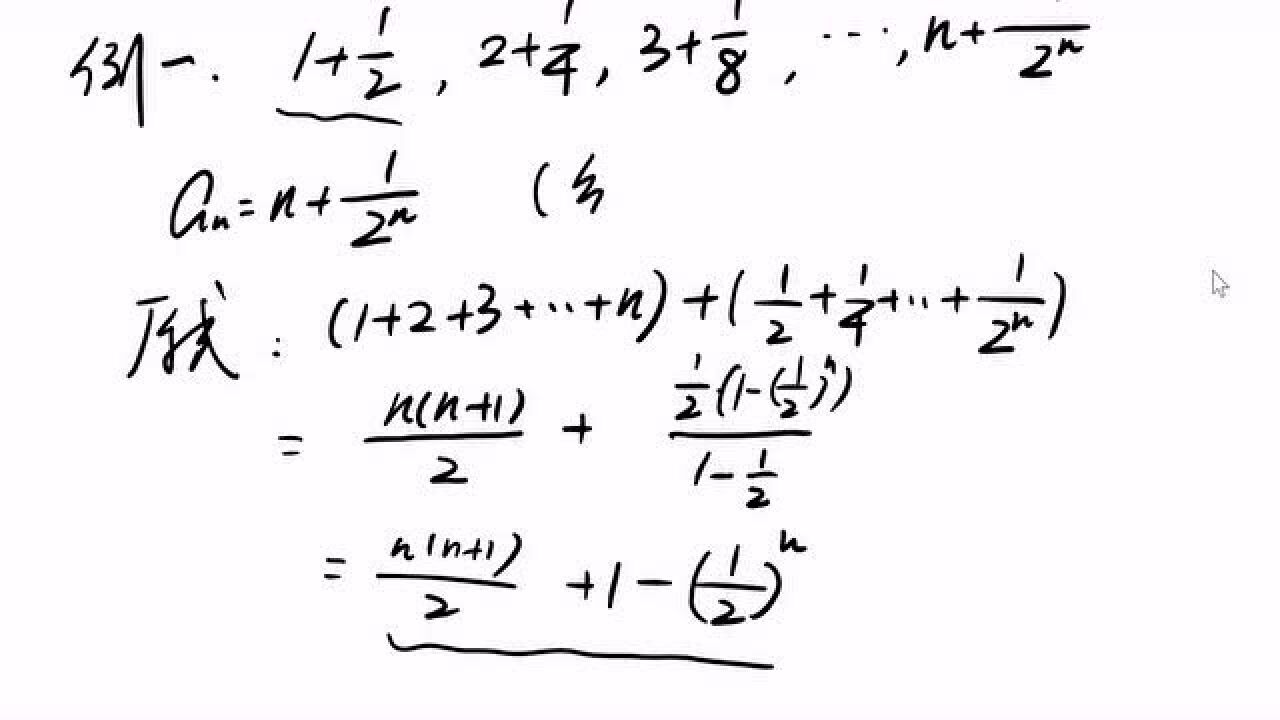 例一. 1+1/2, 2+1/4, 3+1/8, ..., n+1/2^n
a_n=n+1/2^n (
原式: (1+2+3+...+n)+(1/2+1/4+...+1/2^n)
= n(n+1)/2 + 1/2(1-(1/2)^n)/(1-1/2)
= n(n+1)/2 +1-(1/2)^n